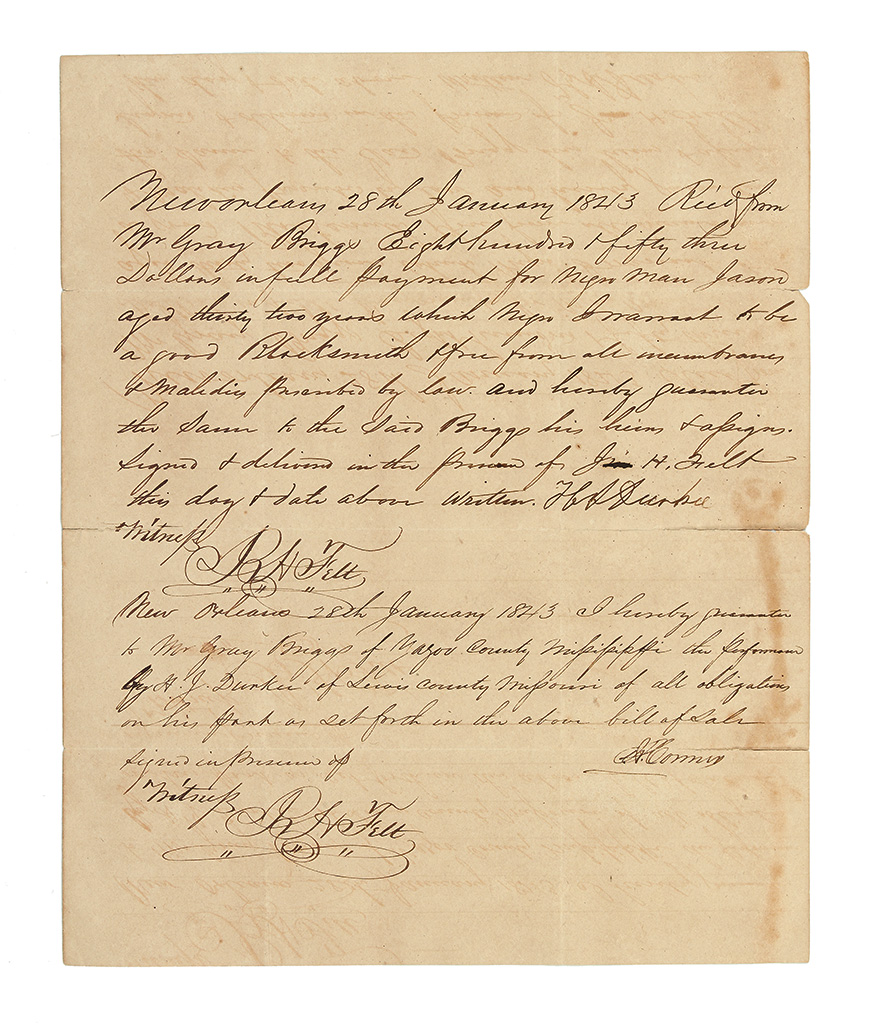 Neworleans 28th January 1843 Rec'd from
Mr Gray Briggs Eight hundred & fifty three
Dollars in full payment for Negro Man Jason
aged thirty two years which Negro I warrant to be
a good Blacksmith & free from all incumbrances
& Malidies prescribed by law. and hereby guarantee
the Same to the Said Briggs his heirs & assigns.
Signed & delivered in the presence of H. Felt
this day & date above written. H Durkee
Witness
R H Felt
New Orleans 28th January 1843 I hereby guarantee
to Mr Gray Briggs of Yazoo County Mississippi the performance
By H. J. Durkee of Lewis County Missouri of all obligations
on his part as set forth in the above bill of Sale
Signed in presence of
Witness
R H Felt